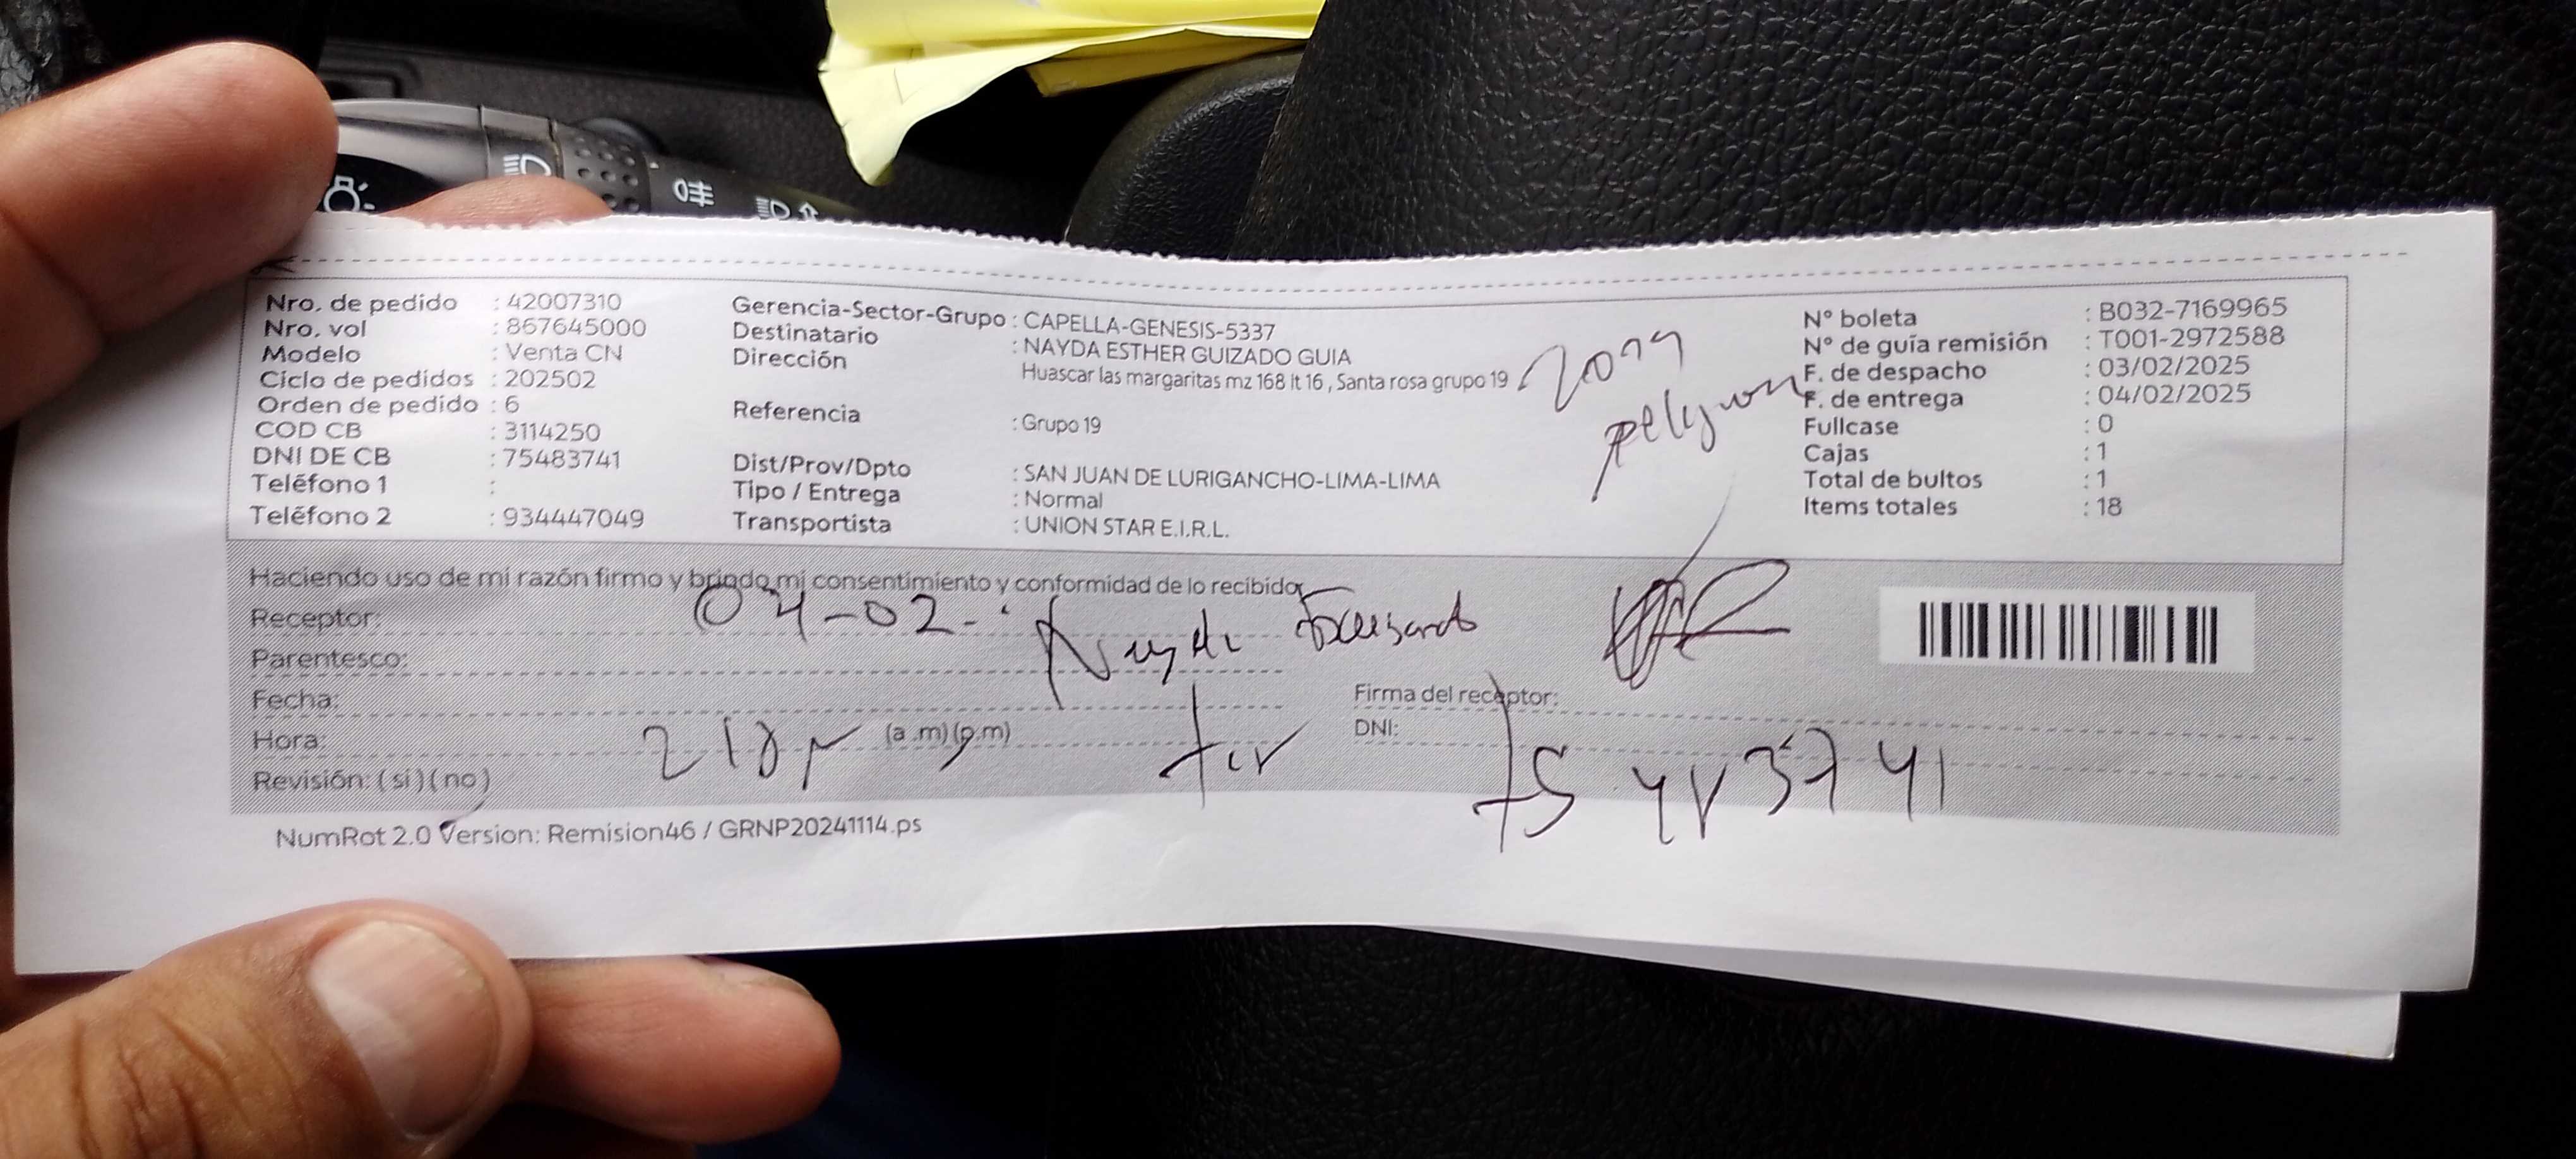 Nro. de pedido : 42007310
Nro. vol : 867645000
Modelo : Venta CN
Ciclo de pedidos : 202502
Orden de pedido : 6
COD CB : 3114250
DNI DE CB : 75483741
Teléfono 1 :
Teléfono 2 : 934447049
Gerencia-Sector-Grupo : CAPELLA-GENESIS-5337
Destinatario : NAYDA ESTHER GUIZADO GUIA
Dirección Huascar las margaritas mz 168 lt 16 , Santa rosa grupo 19
Referencia : Grupo 19
Dist/Prov/Dpto : SAN JUAN DE LURIGANCHO-LIMA-LIMA
Tipo / Entrega : Normal
Transportista : UNION STAR E.I.R.L.
N° boleta : B032-7169965
N° de guía remisión : T001-2972588
F. de despacho : 03/02/2025
F. de entrega : 04/02/2025
Fullcase : 0
Cajas : 1
Total de bultos : 1
Items totales : 18
Haciendo uso de mi razón firmo y brindo mi consentimiento y conformidad de lo recibido
Receptor: 04-02.
Parentesco:
Fecha:
Hora: (a .m) (p.m)
Revisión: ( si ) ( no )
Firma del receptor:
DNI: 75483741
NumRot 2.0 Version: Remision46 / GRNP20241114.ps